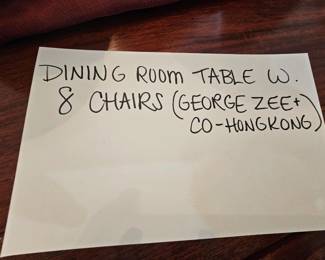 DINING ROOM TABLE W.
8 CHAIRS (GEORGE ZEE+
CO-HONGKONG)